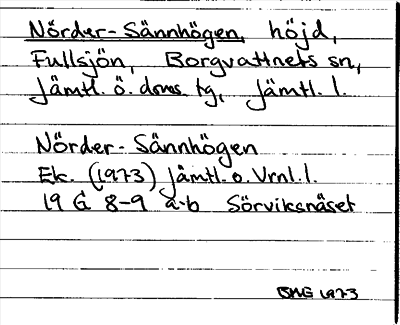 Nörder-Sännhögen, höjd,
Fullsjön, Borgvattnets sn,
Jämtl. ö. doms. tg, Jämtl. l.
Nörder-Sännhögen
Ek. (1973) Jämtl. o. Vrnl. l.
19 G 8-9 a-b Sörviksnäset
BMG 1973